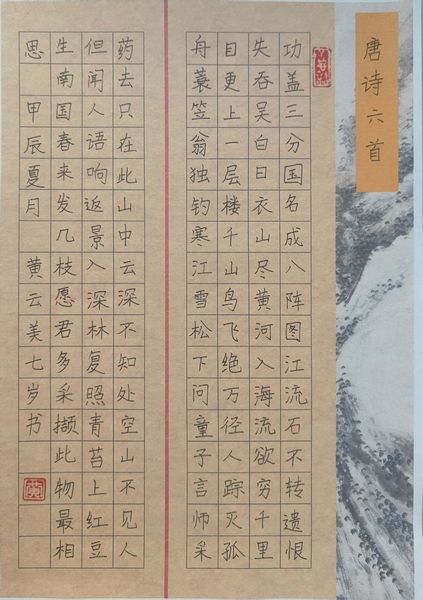 唐诗六首
功盖三分国名成八阵图江流石不转遗恨
失吞吴白日衣山尽黄河入海流欲穷千里
目更上一层楼千山鸟飞绝万径人踪灭孤
舟蓑笠翁独钓寒江雪松下问童子言师采
药去只在此山中云深不知处空山不见人
但闻人语响返景入深林复照青苔上红豆
生南国春来发几枝愿君多采撷此物最相
思 甲辰夏月 黄云美七岁书